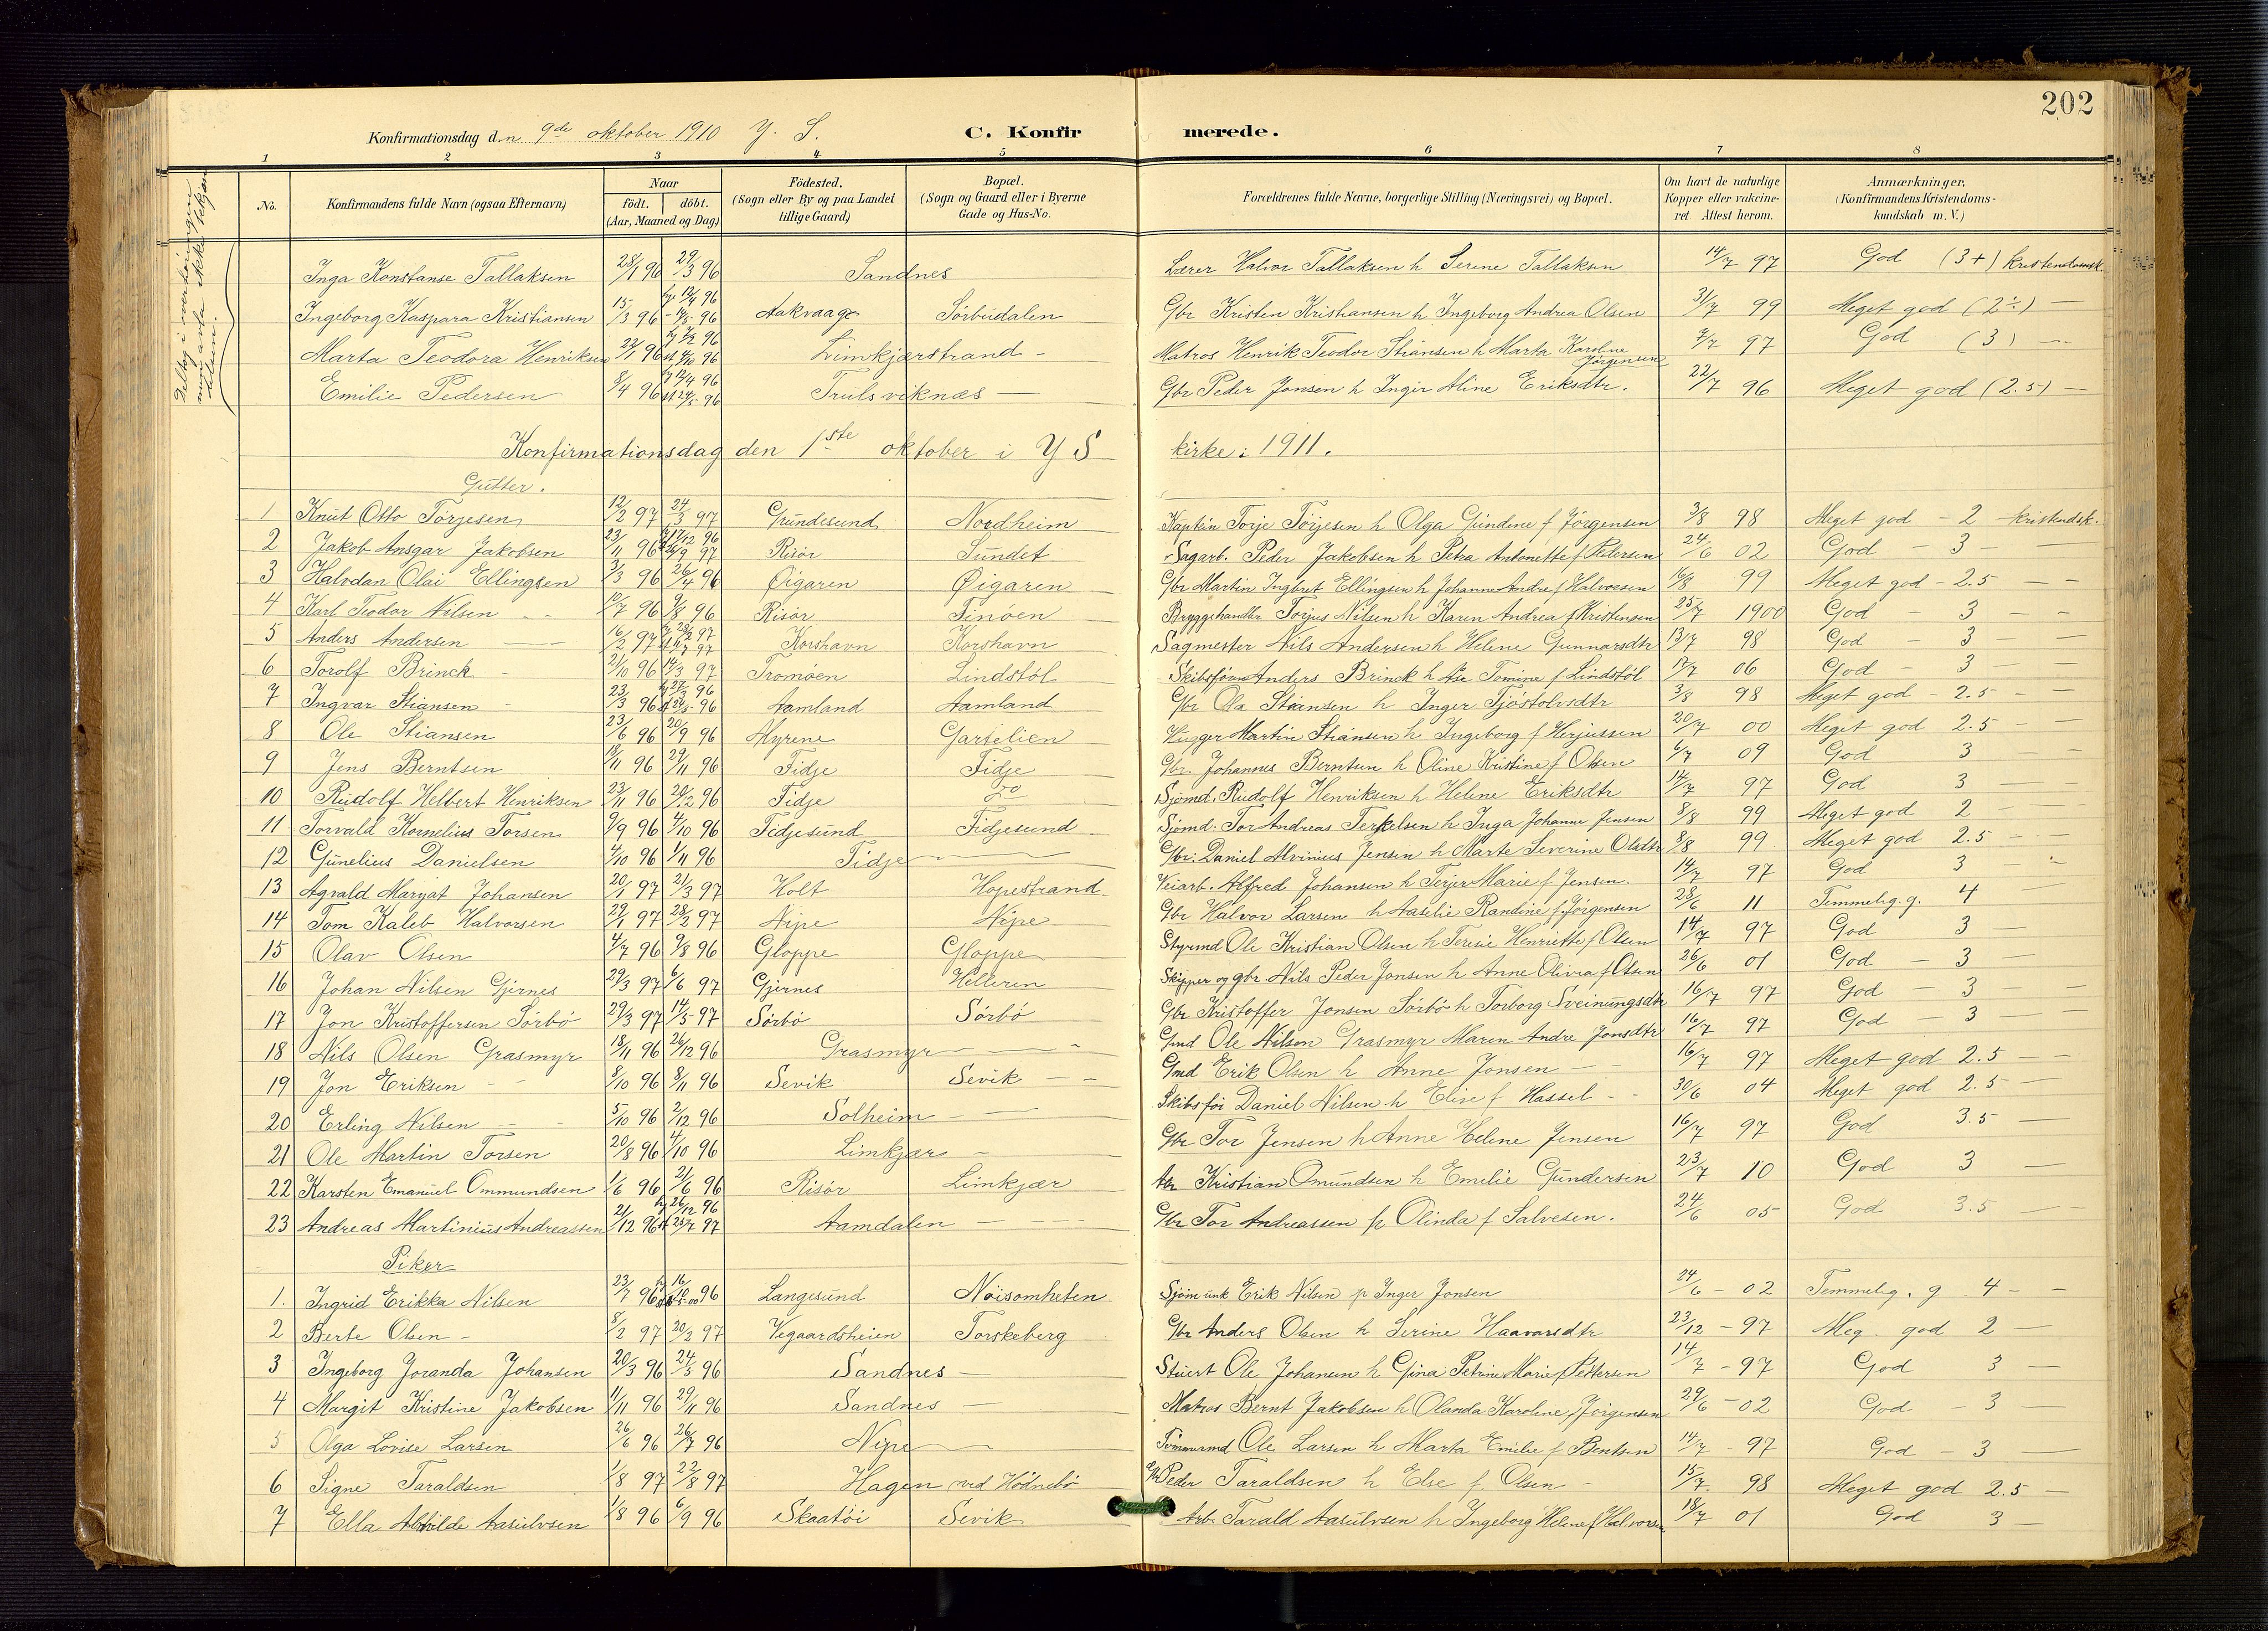 202
Konfirmationsdag den 9de oktober 1910 Y. S. C. Konfirmerede.
1 2 3 4 5 6 7 8
No. Konfirmandens fulde Navn (ogsaa Efternavn) Naar födt. döbt. (Aar, Maaned og Dag) Födested. (Sogn eller By og paa Landet tillige Gaard) Bopæl. (Sogn og Gaard eller i Byerne Gade og Hus-No. Forældrenes fulde Navne, borgerlige Stilling (Næringsvei) og Bopæl. Om havt de naturlige Kopper eller vakcineret. Attest herom. Anmærkninger. (Konfirmandens Kristendomskundskab m. V.)
Inga Konstanse Tallaksen 28/1 96 29/3 96 Sandnes Lærer Halvor Tallaksen h Serene Tallaksen 14/7 97 God (3+) kristendomsk.
Ingeborg Kaspara Kristiansen 15/3 96 Aakvaag Sørbødalen Gbr Kristen Kristiansen h Ingeborg Andrea Olsen 31/7 99 Meget god (2÷) —
Marta Teodora Henriksen Limkjærstrand - Matros Henrik Teodor Stiansen h Marta Karoline Jørgensen 97 God (3) —
Emilie Pedersen 8/4 96 Trulsviknæs — Gbr Peder Jonsen h Ingir Aline Eriksdtr. 22/7 96 Meget god (2.5) —
Konfirmationsdag den 1ste oktober i Y S kirke i 1911.
Gutter.
1 Knut Otto Torjesen 12/2 97 24/3 97 Grundesund Nordheim Kaptein Torje Torjesen h Olga Gundine f Jørgensen 3/8 98 Meget god - 2 - kristendsk.
2 Jakob Ansgar Jakobsen 23/11 96 Risör Sundet Sagarb. Peder Jakobsen h Petra Antonette f Pedersen 24/6 02 God - 3 —
3 Halvdan Olai Ellingsen 3/3 96 26/4 96 Øigaren Øigaren Gbr Martin Ingbret Ellingsen h Johanne Andre f Halvorsen 16/8 99 Meget god - 2.5 —
4 Karl Teodor Nilsen 10/7 96 9/8 96 Risör Finöen Bryggehandler Torjus Nilsen h Karen Andrea f Kristensen 25/7 1900 God - 3 —
5 Anders Andersen 16/2 97 Korshavn Korshavn Sagmester Nils Andersen h Helene Gunnarsdtr 13/7 98 God - 3 —
6 Torolf Brinck 21/10 96 14/3 97 Tromöen Lindstöl Skibsförer Anders Brinck h Åse Tomine f Lindstöl 17/7 06 God - 3 —
7 Ingvar Stiansen 23/3 96 Aamland Aamland Gbr Ola Stiansen h Inger Tjöstolvsdtr 3/8 98 Meget god - 2.5 —
8 Ole Stiansen 23/6 96 20/9 96 Myrene Gartelien Hugger Martin Stiansen h Ingeborg f Herjussen 20/7 00 Meget god 2.5 —
9 Jens Berntsen 18/11 96 29/11 96 Fidje Fidje Gbr. Johannes Berntsen h Oline Kristine f Olsen 6/7 09 God 3 —
10 Rudolf Helbert Henriksen 23/11 96 20/12 96 Fidje do Sjömd. Rudolf Henriksen h Helene Eriksdtr 14/7 97 God 3 —
11 Torvald Kornelius Torsen 9/9 96 4/10 96 Fidjesund Fidjesund Sjömd: Tor Andreas Terkelsen h Inga Johanne Jensen 8/8 99 Meget god 2 —
12 Gunelius Danielsen 4/10 96 1/11 96 Fidje — Gbr: Daniel Alvinius Jensen h Marte Severine Olsdtr 8/8 99 Meget god 2.5 —
13 Agvald Maryat Johansen 20/1 97 21/3 97 Holt Hopestrand Veiarb. Alfred Johansen h Terjer Marie f Jensen. 14/7 97 God 3 —
14 Tom Kaleb Halvorsen 29/1 97 28/2 97 Nipe Nipe Gbr Halvor Larsen h Aasilie Randine f. Jörgensen 28/6 11 Temmelig g. 4
15 Olav Olsen 4/7 96 9/8 96 Gloppe Gloppe Styrmd Ole Kristian Olsen h Terese Henriette f Olsen 14/7 97 God 3 —
16 Johan Nilsen Gjernes 29/3 97 6/6 97 Gjernes Helleren Skipper og gbr Nils Peder Jonsen h Anne Olivia f Olsen 26/6 01 God - 3 —
17 Jon Kristoffersen Sörbö 29/3 97 14/5 97 Sörbö Sörbö Gbr Kristoffer Jonsen Sörbö h Torborg Sveinungsdtr 16/7 97 God - 3 —
18 Nils Olsen Grasmyr 18/11 96 26/12 96 Grasmyr — Gmd Ole Nilsen Grasmyr Maren Andre Jonsdtr 16/7 97 God - 3 —
19 Jon Eriksen 8/10 96 8/11 96 Sevik Sevik — Gmd Erik Olsen h Anne Jonsen — 16/7 97 Meget god 2.5 —
20 Erling Nilsen 5/10 96 2/12 96 Solheim — Skibsför Daniel Nilsen h Elise f Hassel - 30/6 04 Meget god 2.5 —
21 Ole Martin Torsen 20/8 96 4/10 96 Limkjær - Gbr Tor Jensen h Anne Helene Jensen 16/7 97 God 3.5 —
22 Karsten Emanuel Ommundsen 1/6 96 21/6 96 Risör Limkjær Kristian Omundsen h Emilie Gundersen 23/7 10 God 3 —
23 Andreas Martinius Andreassen 21/12 96 Aamdalen — Gbr Tor Andreassen p Olinda f Salvesen. 24/6 05 God 3.5 —
Piker
1. Ingrid Erikka Nilsen 23/7 96 Langesund Nöisomheten Erik Nilsen p Inger Jonsen 24/6 - 02 Temmelig. g 4 -
2 Berte Olsen - 8/2 97 20/2 97 Vegaardsheien Torskeberg Gbr Anders Olsen h Serine Haavorsdtr 23/12 - 97 Meg. god 2 —
3 Ingeborg Joranda Johansen 20/3 96 24/5 96 Sandnes — Stuert Ole Johansen h Gina Petrine Marie f Pettersen 14/7 - 97 God 3 —
4 Margit Kristine Jakobsen 11/11 96 29/11 96 Sandnes — Matros Bernt Jakobsen h Olanda Karoline Jörgensen 29/6 - 02 God - 3
5 Olga Lovise Larsen 26/6 96 26/7 96 Nipe — Tömmermd Ole Larsen h Marta Emilie f Bentsen 14/7 - 97 God - 3 —
6 Signe Taraldsen 1/8 97 22/8 97 Hagen ved Hödnebö Gbr Peder Taraldsen h Else f. Olsen - 15/7. 98 Meget god 2.5 —
7 Ella Alvilde Aasulvsen 1/8 96 6/9 96 Skaatöi Sevik Arb. Tarald Aasulvsen h Ingeborg Helene f Halvorsen 18/7 01 God 3 —